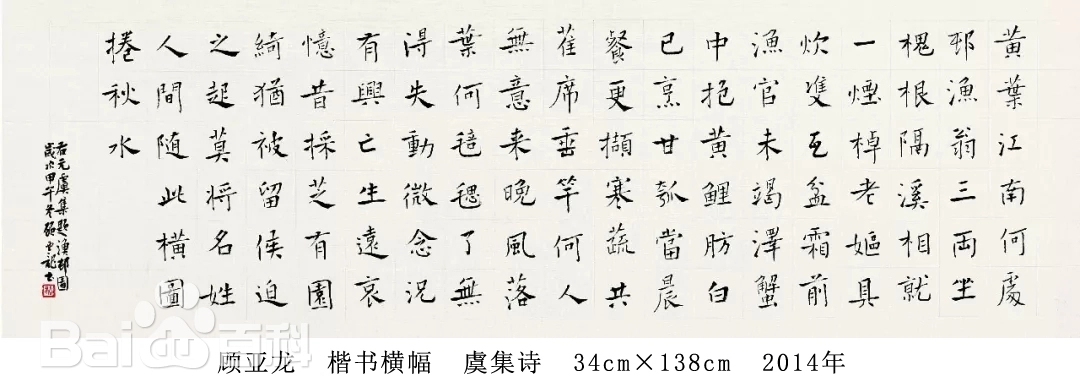 黄葉江南何處
邨漁翁三兩坐
槐根隔溪相就
一煙棹老嫗具
炊雙瓦盆霜前
漁官未竭澤蟹
中抱黄鯉肪白
已烹甘瓠當晨
餐更擷寒蔬共
萑席垂竿何人
無意来晚風落
葉何毰毸了無
得失動微念況
有興亡生遠哀
憶昔採芝有園
綺猶被留侯迫
之起莫將名姓
人間随此横圖
捲秋水
右元虞集題漁邨圖
歲次甲午冬顧亞龍書
Baidu百科
顾亚龙 楷书横幅 虞集诗 34cm×138cm 2014年